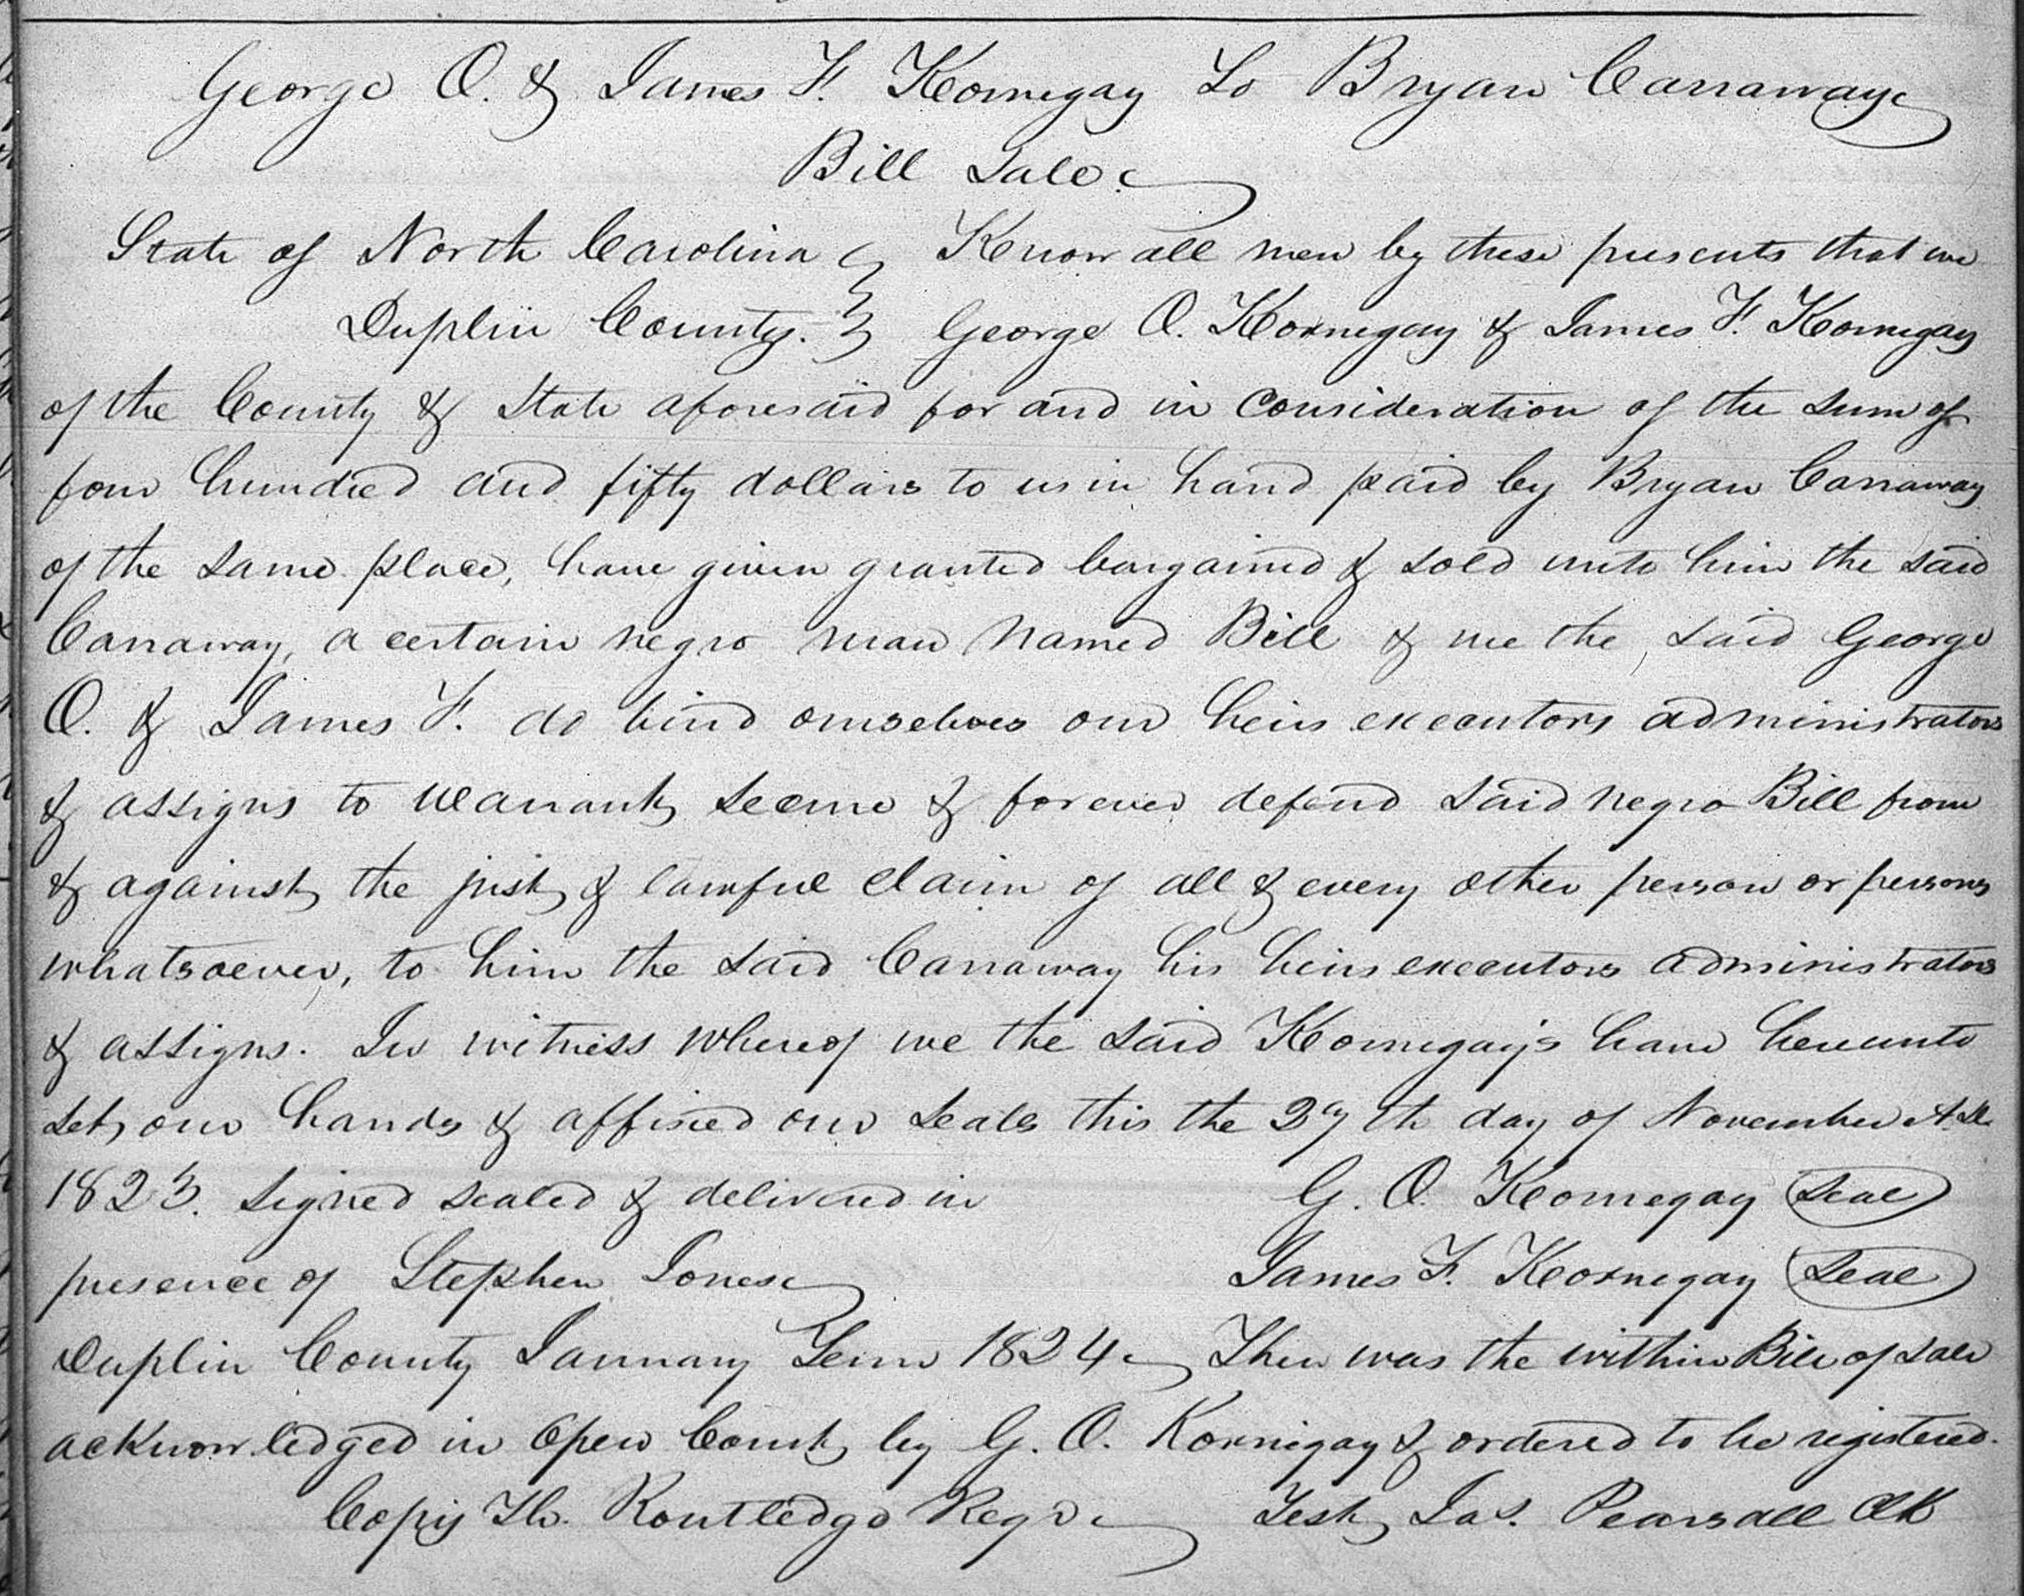 George O. & James F. Kornegay To Bryan Carraway
Bill Sale.
State of North Carolina } Know all men by these presents that we
Duplin County. } George O. Kornegay & James F. Kornegay
of the County & State aforesaid for and in Consideration of the sum of
four hundred and fifty dollars to us in hand paid by Bryan Carraway
of the same place, have given granted bargained & sold unto him the said
Carraway, a certain negro man named Bill & we the, said George
O. & James F. do bind ourselves our heirs executors administrators
& assigns to warrant secure & forever defend said negro Bill from
& against the just & lawful claim of all & every other person or persons
whatsoever, to him the said Carraway his heirs executors administrators
& assigns. In witness whereof we the said Kornegay's have hereunto
set our hands & affixed our seals this the 27th day of November A.D.
1823. Signed sealed & delivered in G. O. Kornegay Seal
presence of Stephen Jones James F. Kornegay Seal
Duplin County January Term 1824. Then was the within Bill of sale
acknowledged in Open Court by G. O. Kornegay & ordered to be registered.
Copy Th. Routledge Regr. Test Jas. Pearsall Clk